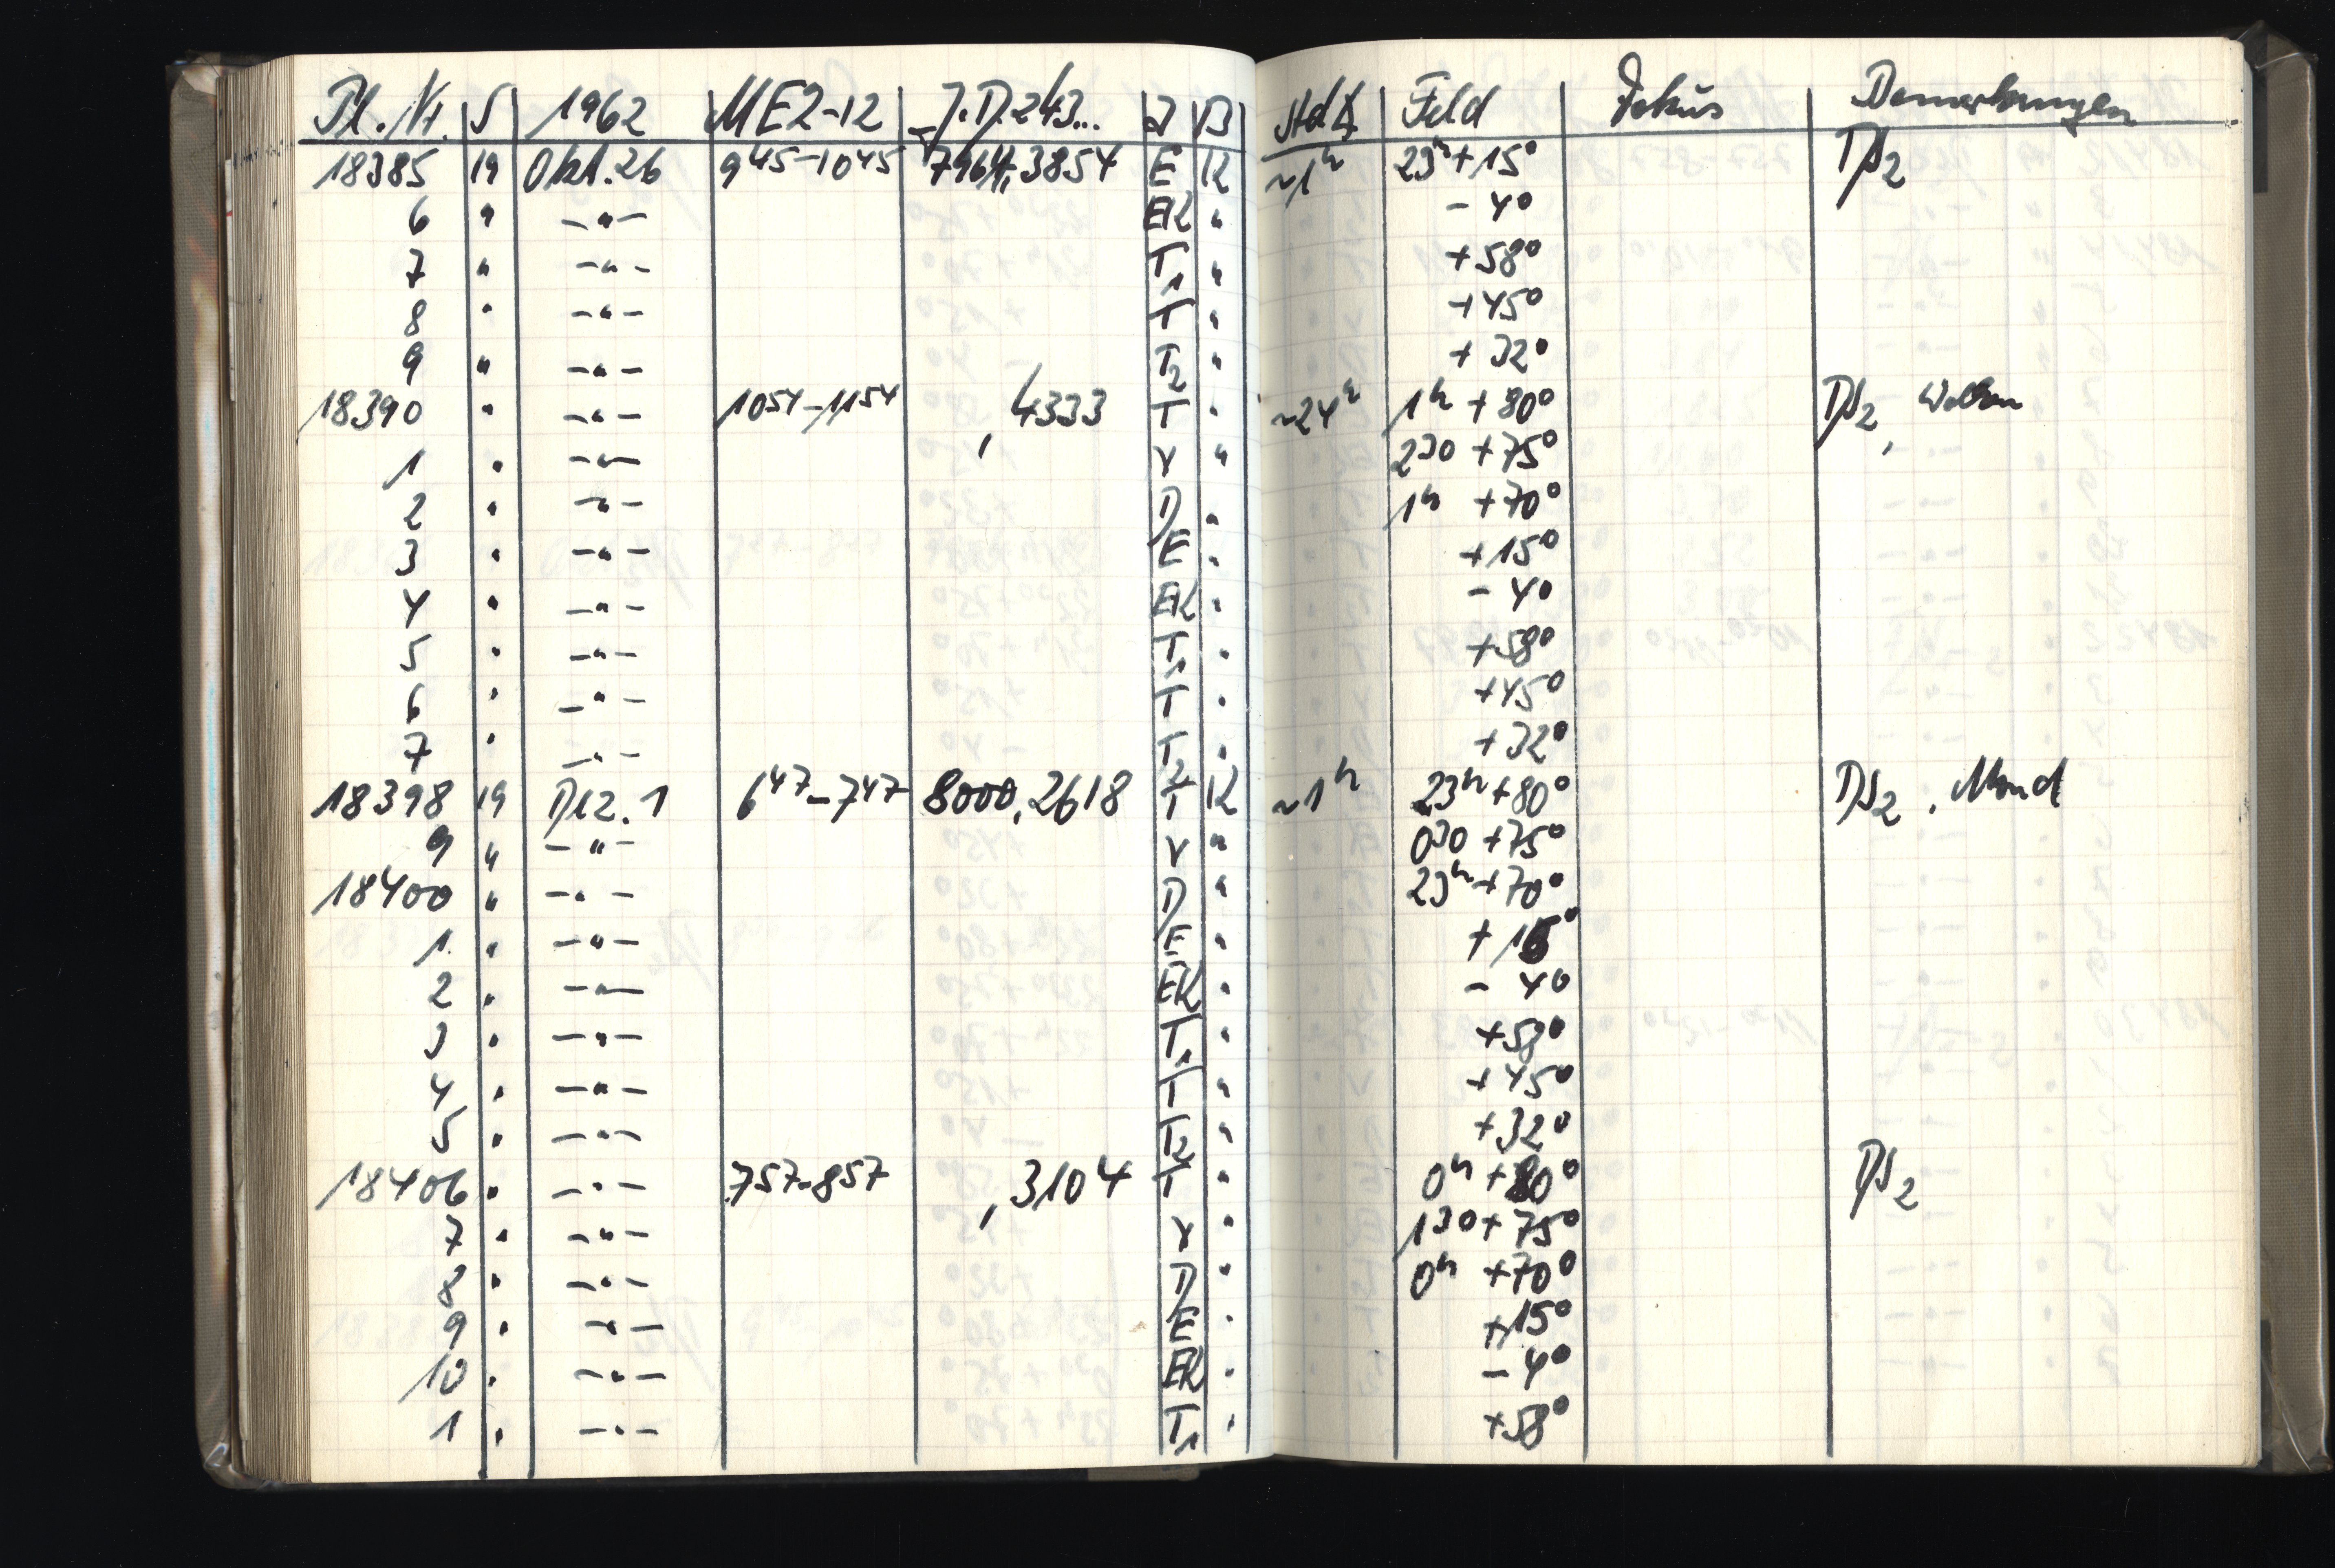 Pl. Nr. S 1962 MEZ-12 J.D. 243... I B Std∢ Feld Fokus Bemerkungen
18385 19 Okt. 26 9 45 - 10 45 7964,3854 E K ~1h 23h +15° DS2
6 " -"- EK " - 4°
7 " -"- T1 " +58°
8 " -"- T " +45°
9 " -"- T2 " +32°
18390 " -"- 10 54 - 11 54 ,4333 T " ~24h 1h +80° DS2, Wolken
1 " -"- V " 2 30 +75°
2 " -"- D " 1h +70°
3 " -"- E " +15°
4 " -"- EK " - 4°
5 " -"- T1 " +58°
6 " -"- T " +45°
7 " -"- T2 " +32°
18398 19 Dez. 1 6 47 - 7 47 8000,2618 T K ~1h 23h +80° DS2, Mond
9 " -"- V " 0 30 +75°
18400 " -"- D " 23h +70°
1 " -"- E " +15°
2 " -"- EK " - 4°
3 " -"- T1 " +58°
4 " -"- T " +45°
5 " -"- T2 " +32°
18406 " -"- 7 57 - 8 57 ,3104 T " 0h +80° DS2
7 " -"- V " 1 30 +75°
8 " -"- D " 0h +70°
9 " -"- E " +15°
10 " -"- EK " - 4°
1 " -"- T1 " +58°